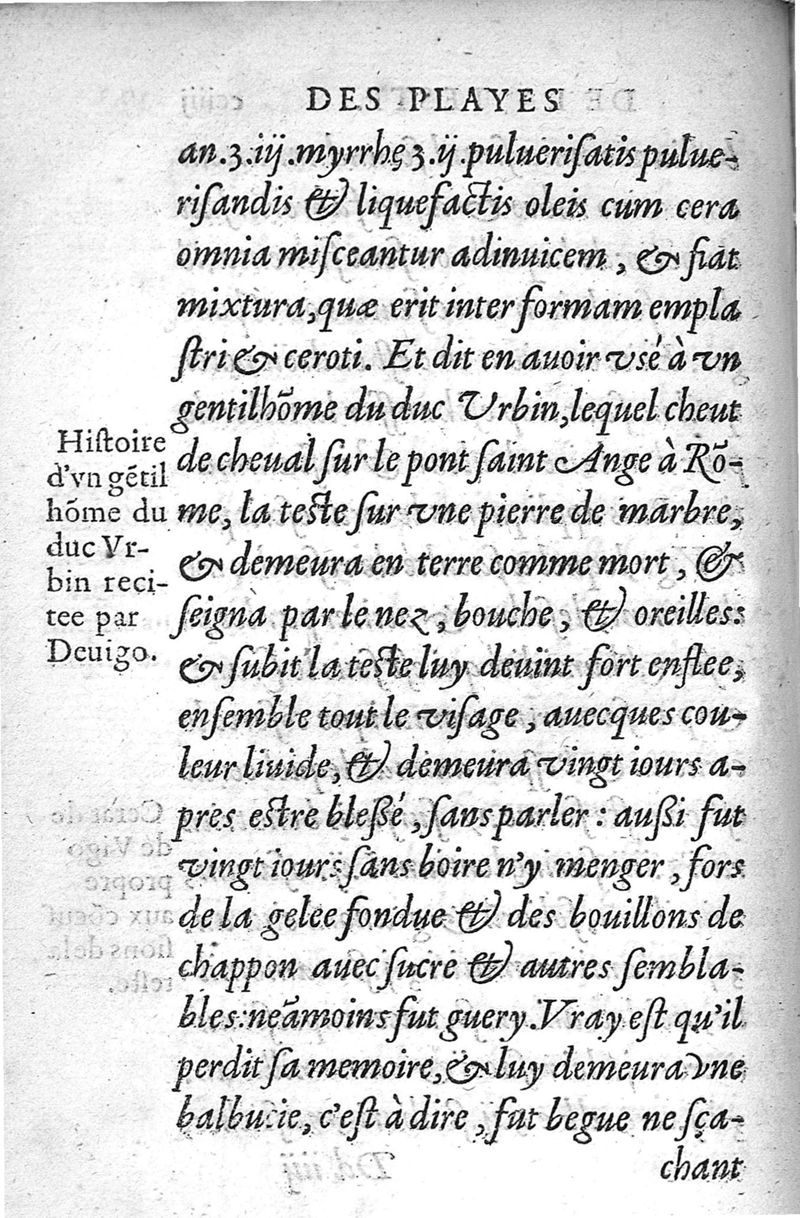 DES PLAYES
an.ʒ.iij.myrrhę ʒ.ij.pulueriſatis pulue-
riſandis & liquefactis oleis cum cera
omnia miſceantur adinuicem, & fiat
mixtura, quæ erit inter formam empla
ſtri & ceroti. Et dit en auoir vsé à vn
gentilhõme du duc Vrbin, lequel cheut
de cheual ſur le pont ſaint Ange à Rõ-
me, la teſte ſur vne pierre de marbre,
& demeura en terre comme mort, &
ſeigna par le nez, bouche, & oreilles:
& ſubit la teſte luy deuint fort enflee,
enſemble tout le viſage, auecques cou-
leur liuide, & demeura vingt iours a-
pres eſtre bleſſé, ſans parler: auſſi fut
vingt iours ſans boire n'y menger, fors
de la gelee fondue & des bouillons de
chappon auec ſucre & autres ſembla-
bles: neãmoins fut guery. Vray eſt qu'il
perdit ſa memoire, & luy demeura vne
balbucie, c'eſt à dire, fut begue ne ſça-
chant
Hiſtoire
d'vn gẽtil
hõme du
duc Vr-
bin reci-
tee par
Deuigo.